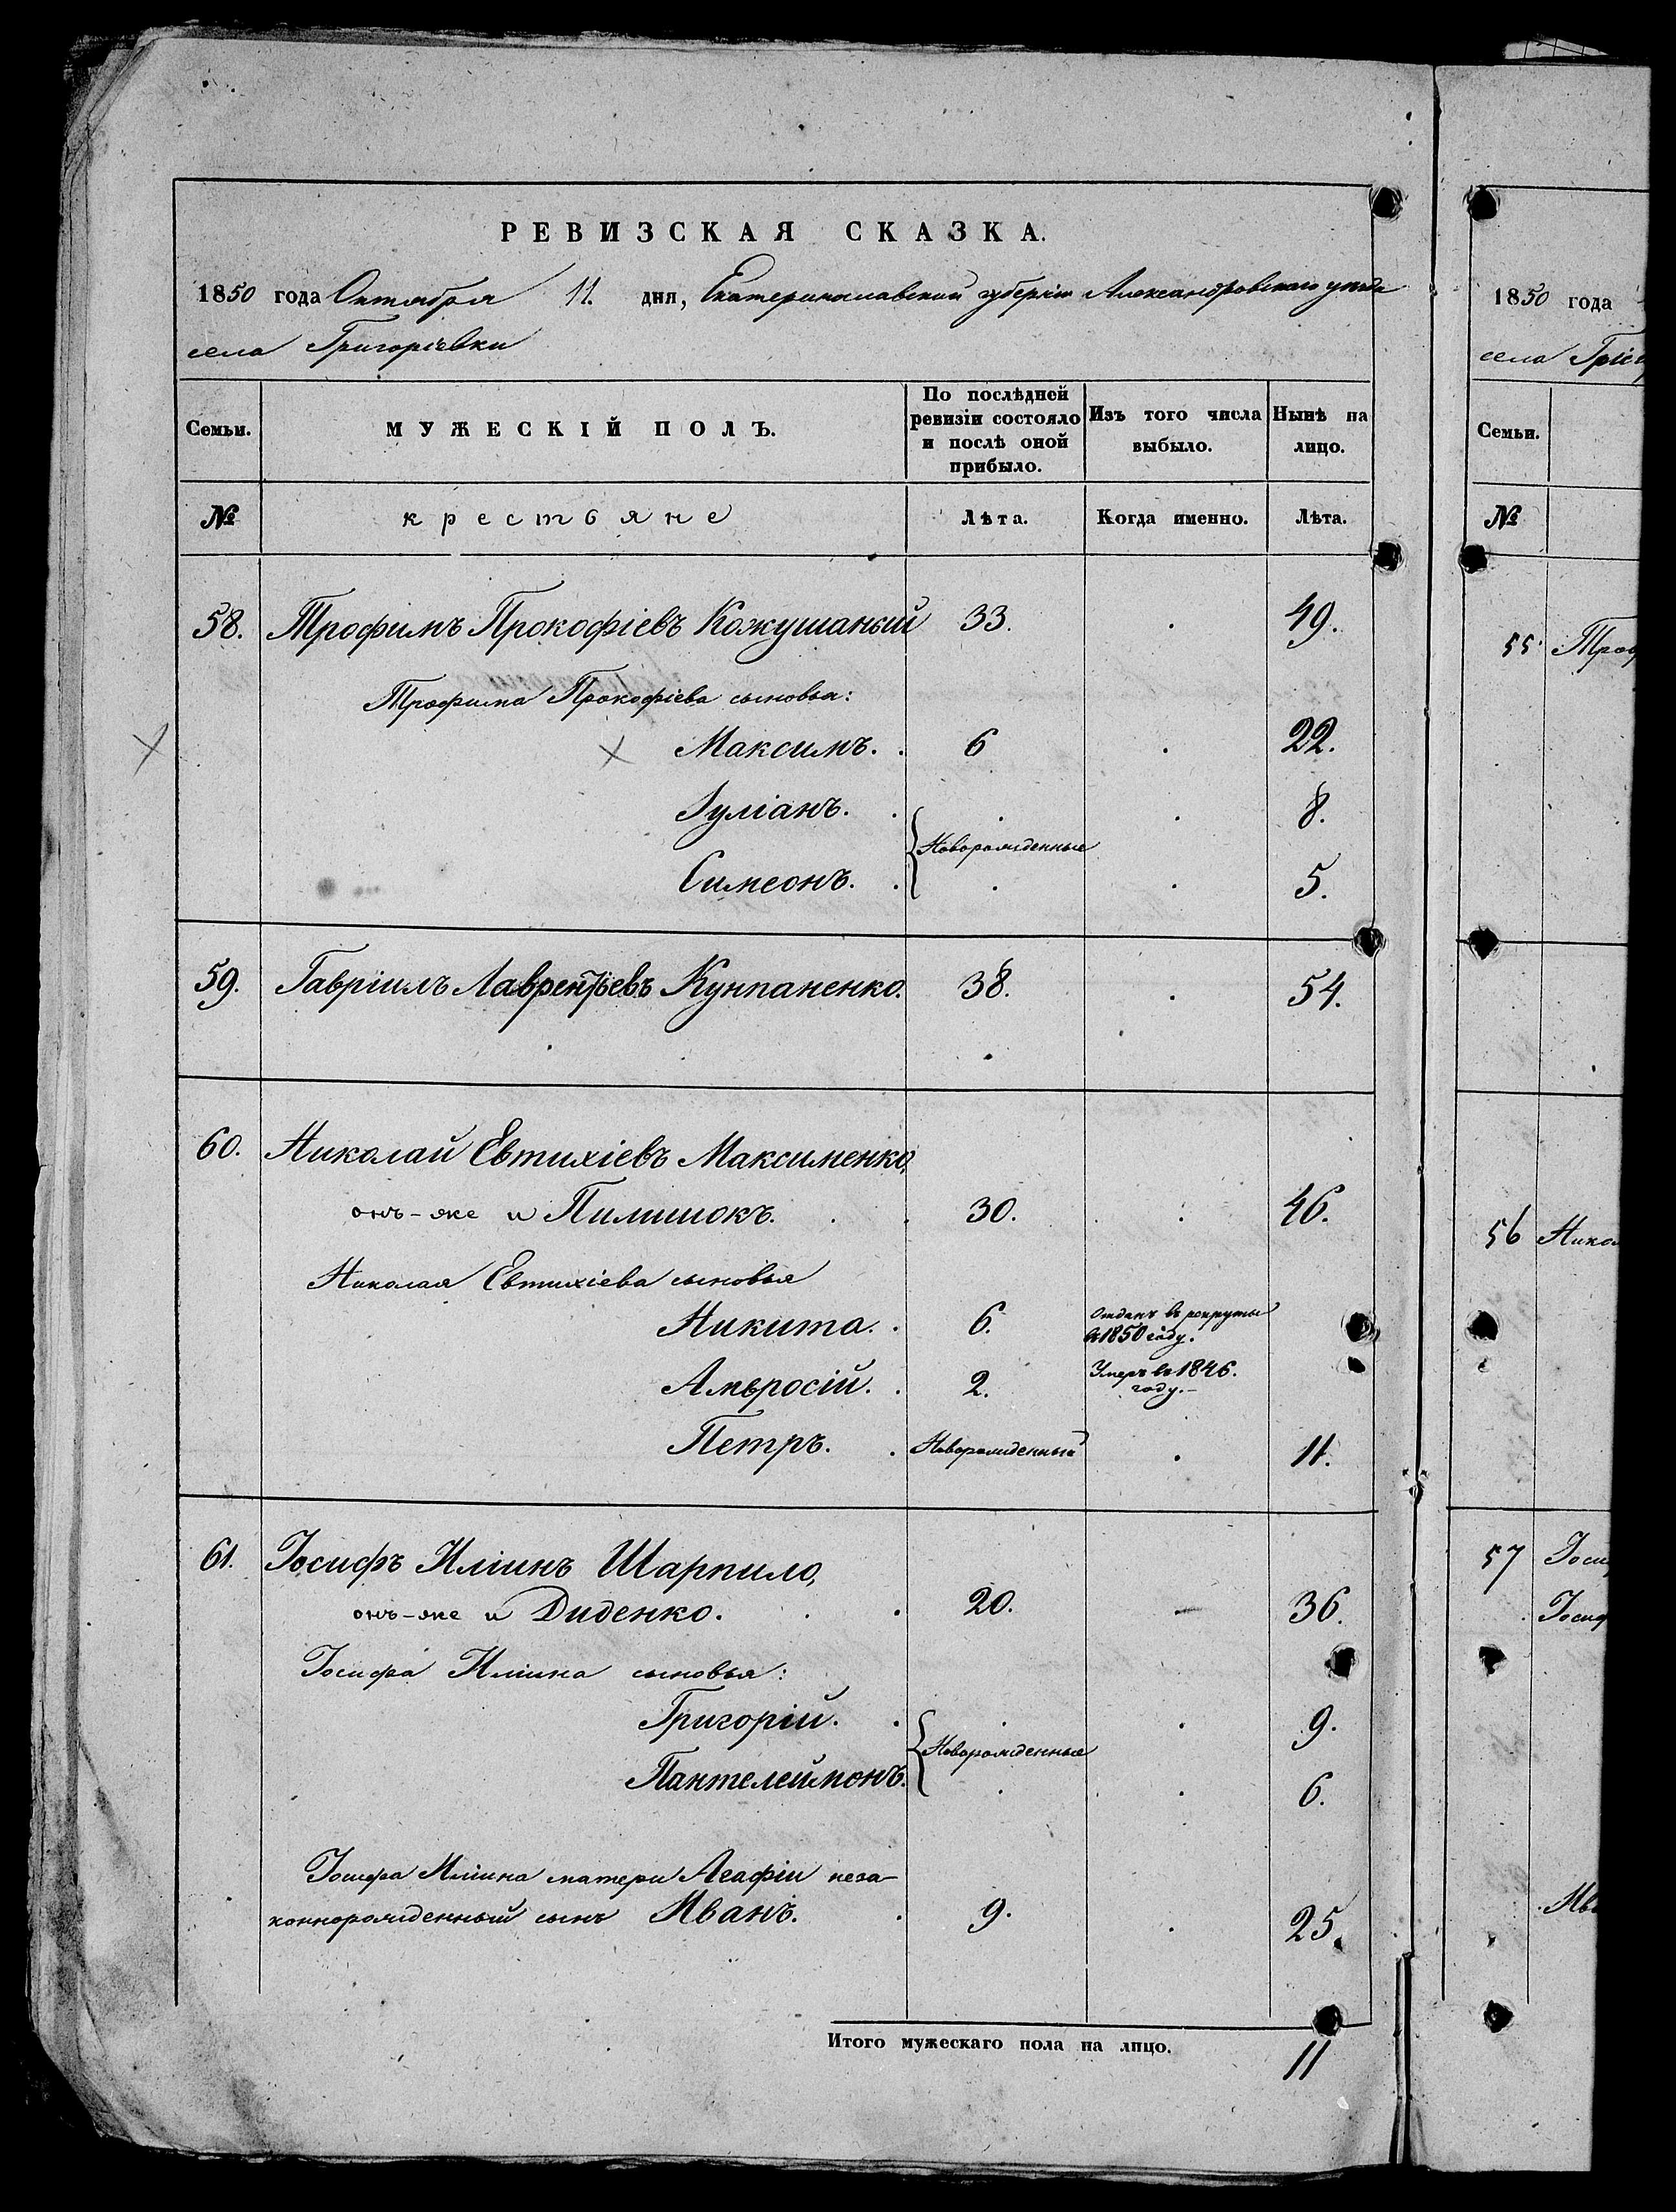 РЕВИЗСКАЯ СКАЗКА.
1850 года Октября 11. дня, Екатеринославской губернии Александровского уезда
села Григоріевки
Семьи.
МУЖЕСКІЙ ПОЛЪ.
По послѣдней ревизіи состояло и послѣ оной прибыло.
Изъ того числа выбыло.
Нынѣ на лицо.
№
крестьяне
Лѣта.
Когда именно.
Лѣта.
58. Трофимъ Прокофіевъ Кожушаный 33. 49.
Трофима Прокофіева сыновья:
Максимъ. 6 22.
Іуліанъ. 8.
Новорожденные
Симеонъ. 5.
59. Гавріилъ Лаврентьевъ Кунпаненко. 38. 54.
60. Николай Евтихіевъ Максименко,
онъ-же и Пилипокъ. 30. 46.
Николая Евтихіева сыновья
Никита. 6. Отданъ въ рекруты
въ 1850 году.
Амвросій. 2. Умеръ въ 1846.
году.-
Петръ. Новорожденный 11.
61. Іосифъ Иліинъ Шарпило,
онъ-же и Диденко. 20. 36.
Іосифа Иліина сыновья:
Григорій. 9.
Новорожденные
Пантелеймонъ. 6.
Іосифа Иліина матери Агафіи неза-
коннорожденный сынъ Иванъ. 9. 25.
Итого мужескаго пола на лицо. 11
1850 года
села
Семьи.
№
55.
56
57